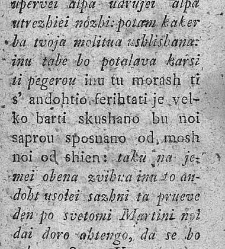 upervei alpa udrujei alpa
utrezhiei nozhi: potam kaker
ba tvoja molitua ushlishana:
inu tabe bo potalava karsi
ti pegerou inu tu morash ti
s' andohtio ferihtati je vel-
ko barti skushano bu noi
saprou sposnano od mosh
noi od shien: taku na je-
mei obena zvibra inu to an-
dobt usotei sazhni ta prueve
den po svetomi Martini noi
dai doro ahtengo, da se bo